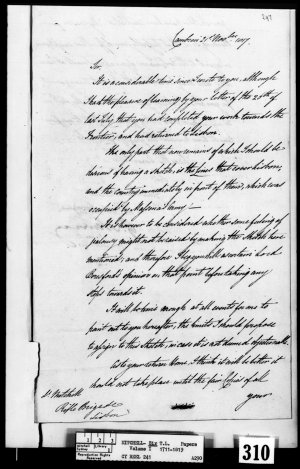 241
Cambrai 21 Nov.ber 1817.
Sir,
It is a considerable time since I wrote to you, although
I had the pleasure of learning by your letter of the 24th of
last July, that you had completed your work towards the
Frontier, and had returned to Lisbon.
The only part that now remains of which I should be
desirous of having a sketch, is the lines that cover Lisbon,
and the country immediately in front of them, which was
occupied by Massena's Army.
It is however to be considered whether some feeling of
jealousy might not be caused by making the sketch here
mentioned, and therefore I beg you will ascertain Lord
Beresford's opinion on that point before taking any
steps towards it.
It will be time enough at all events for me to
point out to you hereafter, the limits I should propose
to assign to this Sketch, in case it is not deemed objectionable.
As to your return Home, I think it will be better it
should not take place with the fair Copies of all
your
Lt Mitchell
Rifle Brigade
Lisbon
MITCHELL, Sir T.L. Papers
Volume 1 1711-1819
CY REEL 241 A290
310